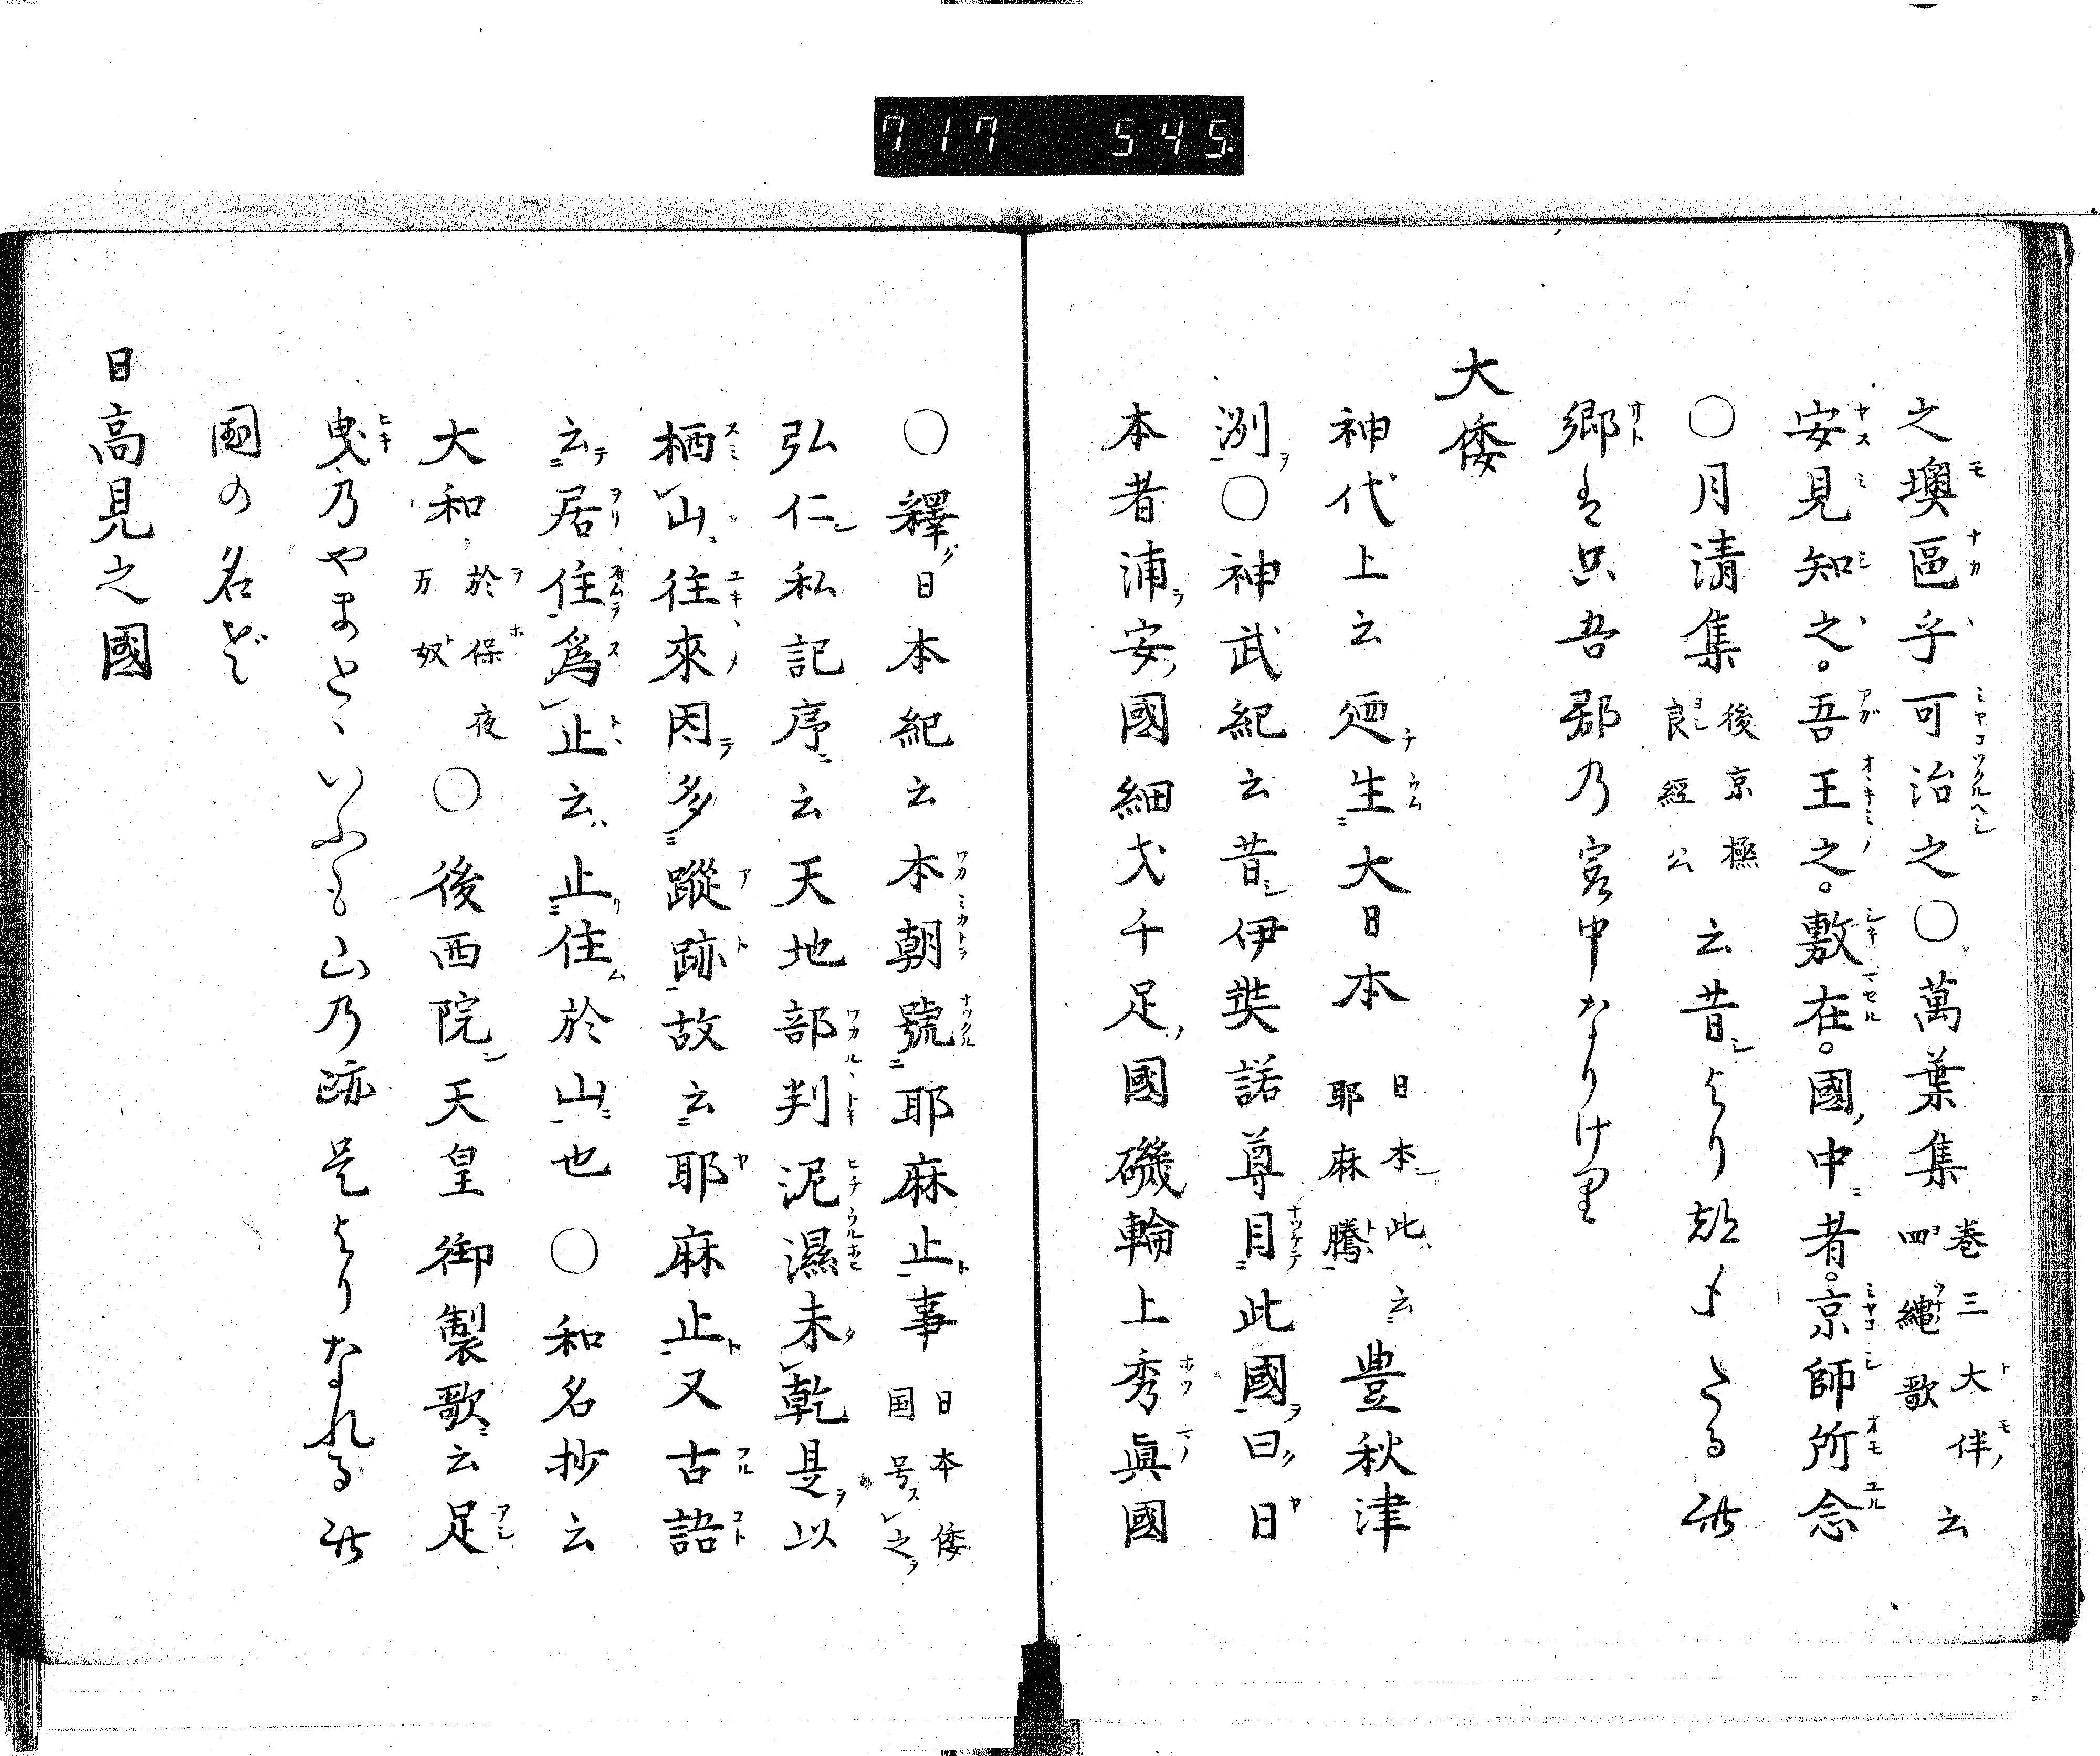 717 545
之墺區乎可治之○萬葉集 巻三大伴四縄歌 云
安見知之。吾王之。敷在。國中者。京師所念
○月清集 後京極良經公 云昔より都としたる此
郷も只吾郡乃宮中なりけり
大倭
神代上云廼生大日本 日本此云耶麻騰 豊秋津
洲○神武紀云昔伊奘諾尊目此國曰日
本者浦安國細戈千足國磯輪上秀眞國
○釋日本紀云本朝號耶麻止事 日本倭国号之
弘仁私記序云天地部判泥濕未乾是以
栖山往來因多蹤跡故云耶麻止又古語
云居住爲止云止住於山也○和名抄云
大和 於保夜万奴 ○後西院天皇御製歌云足
曳乃やまとゝいふも山乃跡是よりなれる此
國の名ぞ
日高見之國